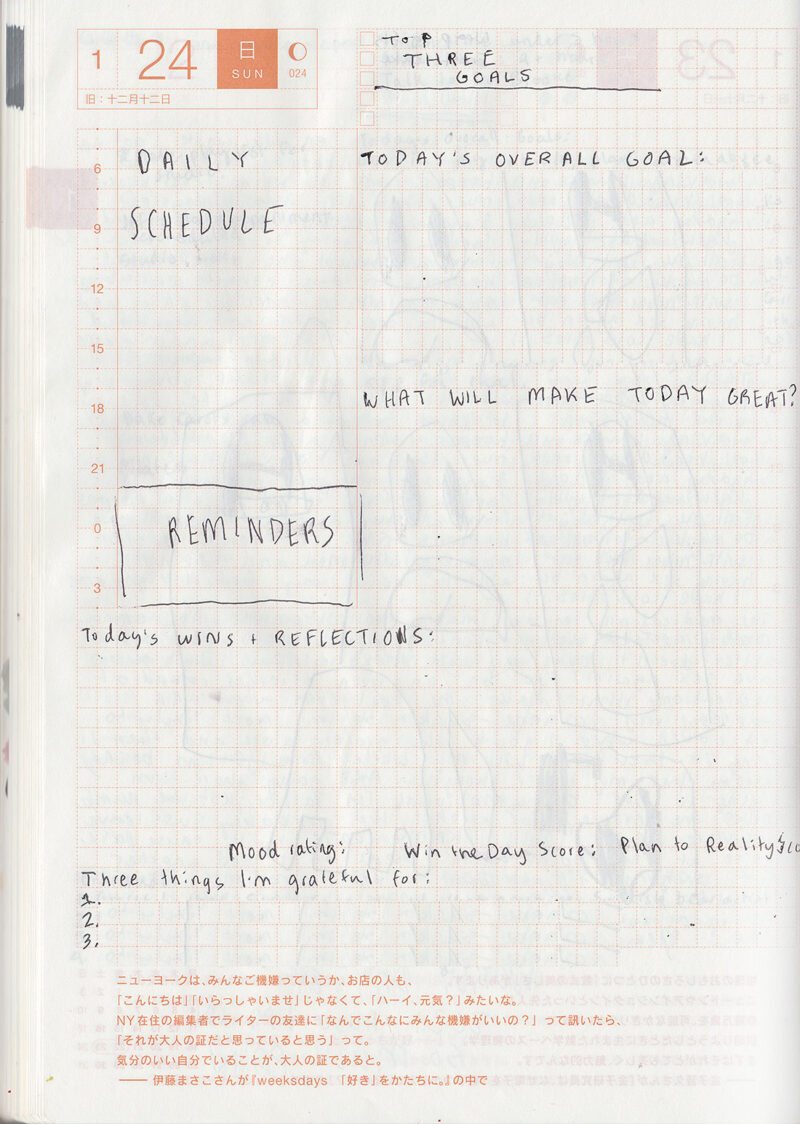 1 24 日 SUN 024
旧：十二月十二日
TOP
THREE
GOALS
6
DAILY
SCHEDULE
9
12
15
18
21
0
3
TODAY'S OVERALL GOAL:
WHAT WILL MAKE TODAY GREAT?
REMINDERS
Today's WINS + REFLECTIONS:
Mood rating: Win the Day Score: Plan to Reality Sco
Three things I'm grateful for:
1.
2.
3.
ニューヨークは、みんなご機嫌っていうか、お店の人も、
「こんにちは」「いらっしゃいませ」じゃなくて、「ハーイ、元気？」みたいな。
NY在住の編集者でライターの友達に「なんでこんなにみんな機嫌がいいの？」 って訊いたら、
「それが大人の証だと思っていると思う」 って。
気分のいい自分でいることが、大人の証であると。
―― 伊藤まさこさんが『weeksdays 「好き」をかたちに。』の中で